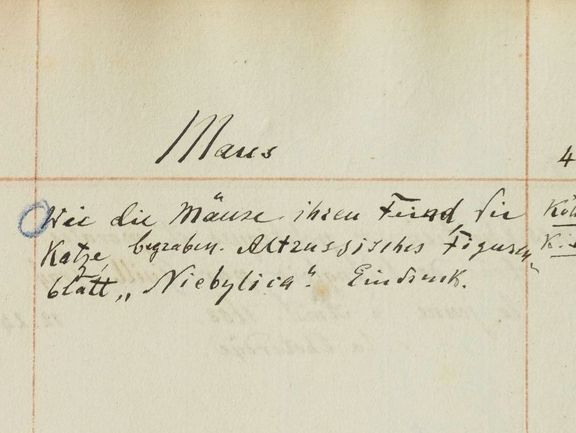 Maus
4
Wie die Mäuse ihren Feind, die
Katze, begraben. Altrussisches Figuren-
blatt „Niebylica“. Eindruck.